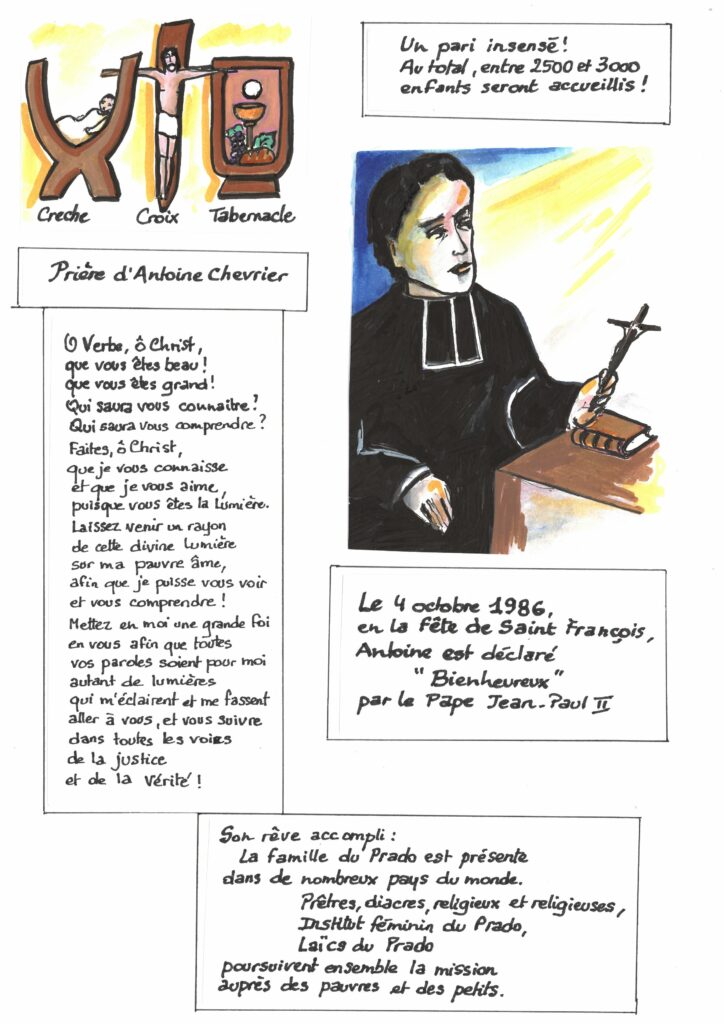 Creche Croix Tabernacle
Un pari insensé!
Au total, entre 2500 et 3000
enfants seront accueillis!
Prière d'Antoine Chevrier
O Verbe, ô Christ,
que vous êtes beau!
que vous êtes grand!
Qui saura vous connaître?
Qui saura vous comprendre?
Faites, ô Christ,
que je vous connaisse
et que je vous aime,
puisque vous êtes la Lumière.
Laissez venir un rayon
de cette divine Lumière
sur ma pauvre âme,
afin que je puisse vous voir
et vous comprendre!
Mettez en moi une grande foi
en vous afin que toutes
vos paroles soient pour moi
autant de lumières
qui m'éclairent et me fassent
aller à vous, et vous suivre
dans toutes les voies
de la justice
et de la Vérité!
Le 4 octobre 1986,
en la Fête de Saint François,
Antoine est déclaré
"Bienheureux"
par le Pape Jean-Paul II
Son rêve accompli:
La famille du Prado est présente
dans de nombreux pays du monde.
Prêtres, diacres, religieux et religieuses,
Institut féminin du Prado,
Laïcs du Prado
poursuivent ensemble la mission
auprès des pauvres et des petits.